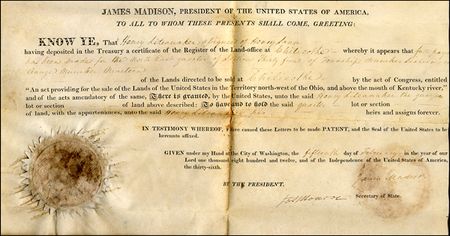 JAMES MADISON, PRESIDENT OF THE UNITED STATES OF AMERICA,
TO ALL TO WHOM THESE PRESENTS SHALL COME, GREETING:
KNOW YE, That Henry
having deposited in the Treasury a certificate of the Register of the Land-office at whereby it appears that
has been made for the quarter of of Township Number
Range Number
of the Lands directed to be sold at by the act of Congress, entitled
"An act providing for the sale of the Lands of the United States in the Territory north-west of the Ohio, and above the mouth of Kentucky river,"
and of the acts amendatory of the same, There is granted, by the United States, unto the said Henry the quarter
lot or section of land above described: To have and to hold the said quarter lot or section
of land, with the appurtenances, unto the said Henry his heirs and assigns forever.
IN TESTIMONY WHEREOF, I have caused these Letters to be made PATENT, and the Seal of the United States to be
hereunto affixed.
GIVEN under my Hand at the City of Washington, the fifteenth day of in the year of our
Lord one thousand eight hundred and twelve, and of the Independence of the United States of America,
the thirty-sixth.
James Madison
BY THE PRESIDENT,
Jas Monroe Secretary of State.